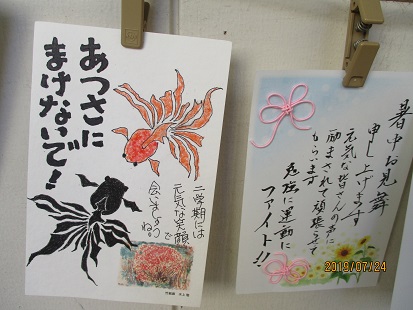 あつさに
まけないで!
二学期には
元気な笑顔で
会いましょう
ね。
暑中お見舞
申し上げます
元気な皆さんの声に
励まされて頑張らせて
もらいます
勉強に運動に
ファイト!!
2019/07/24